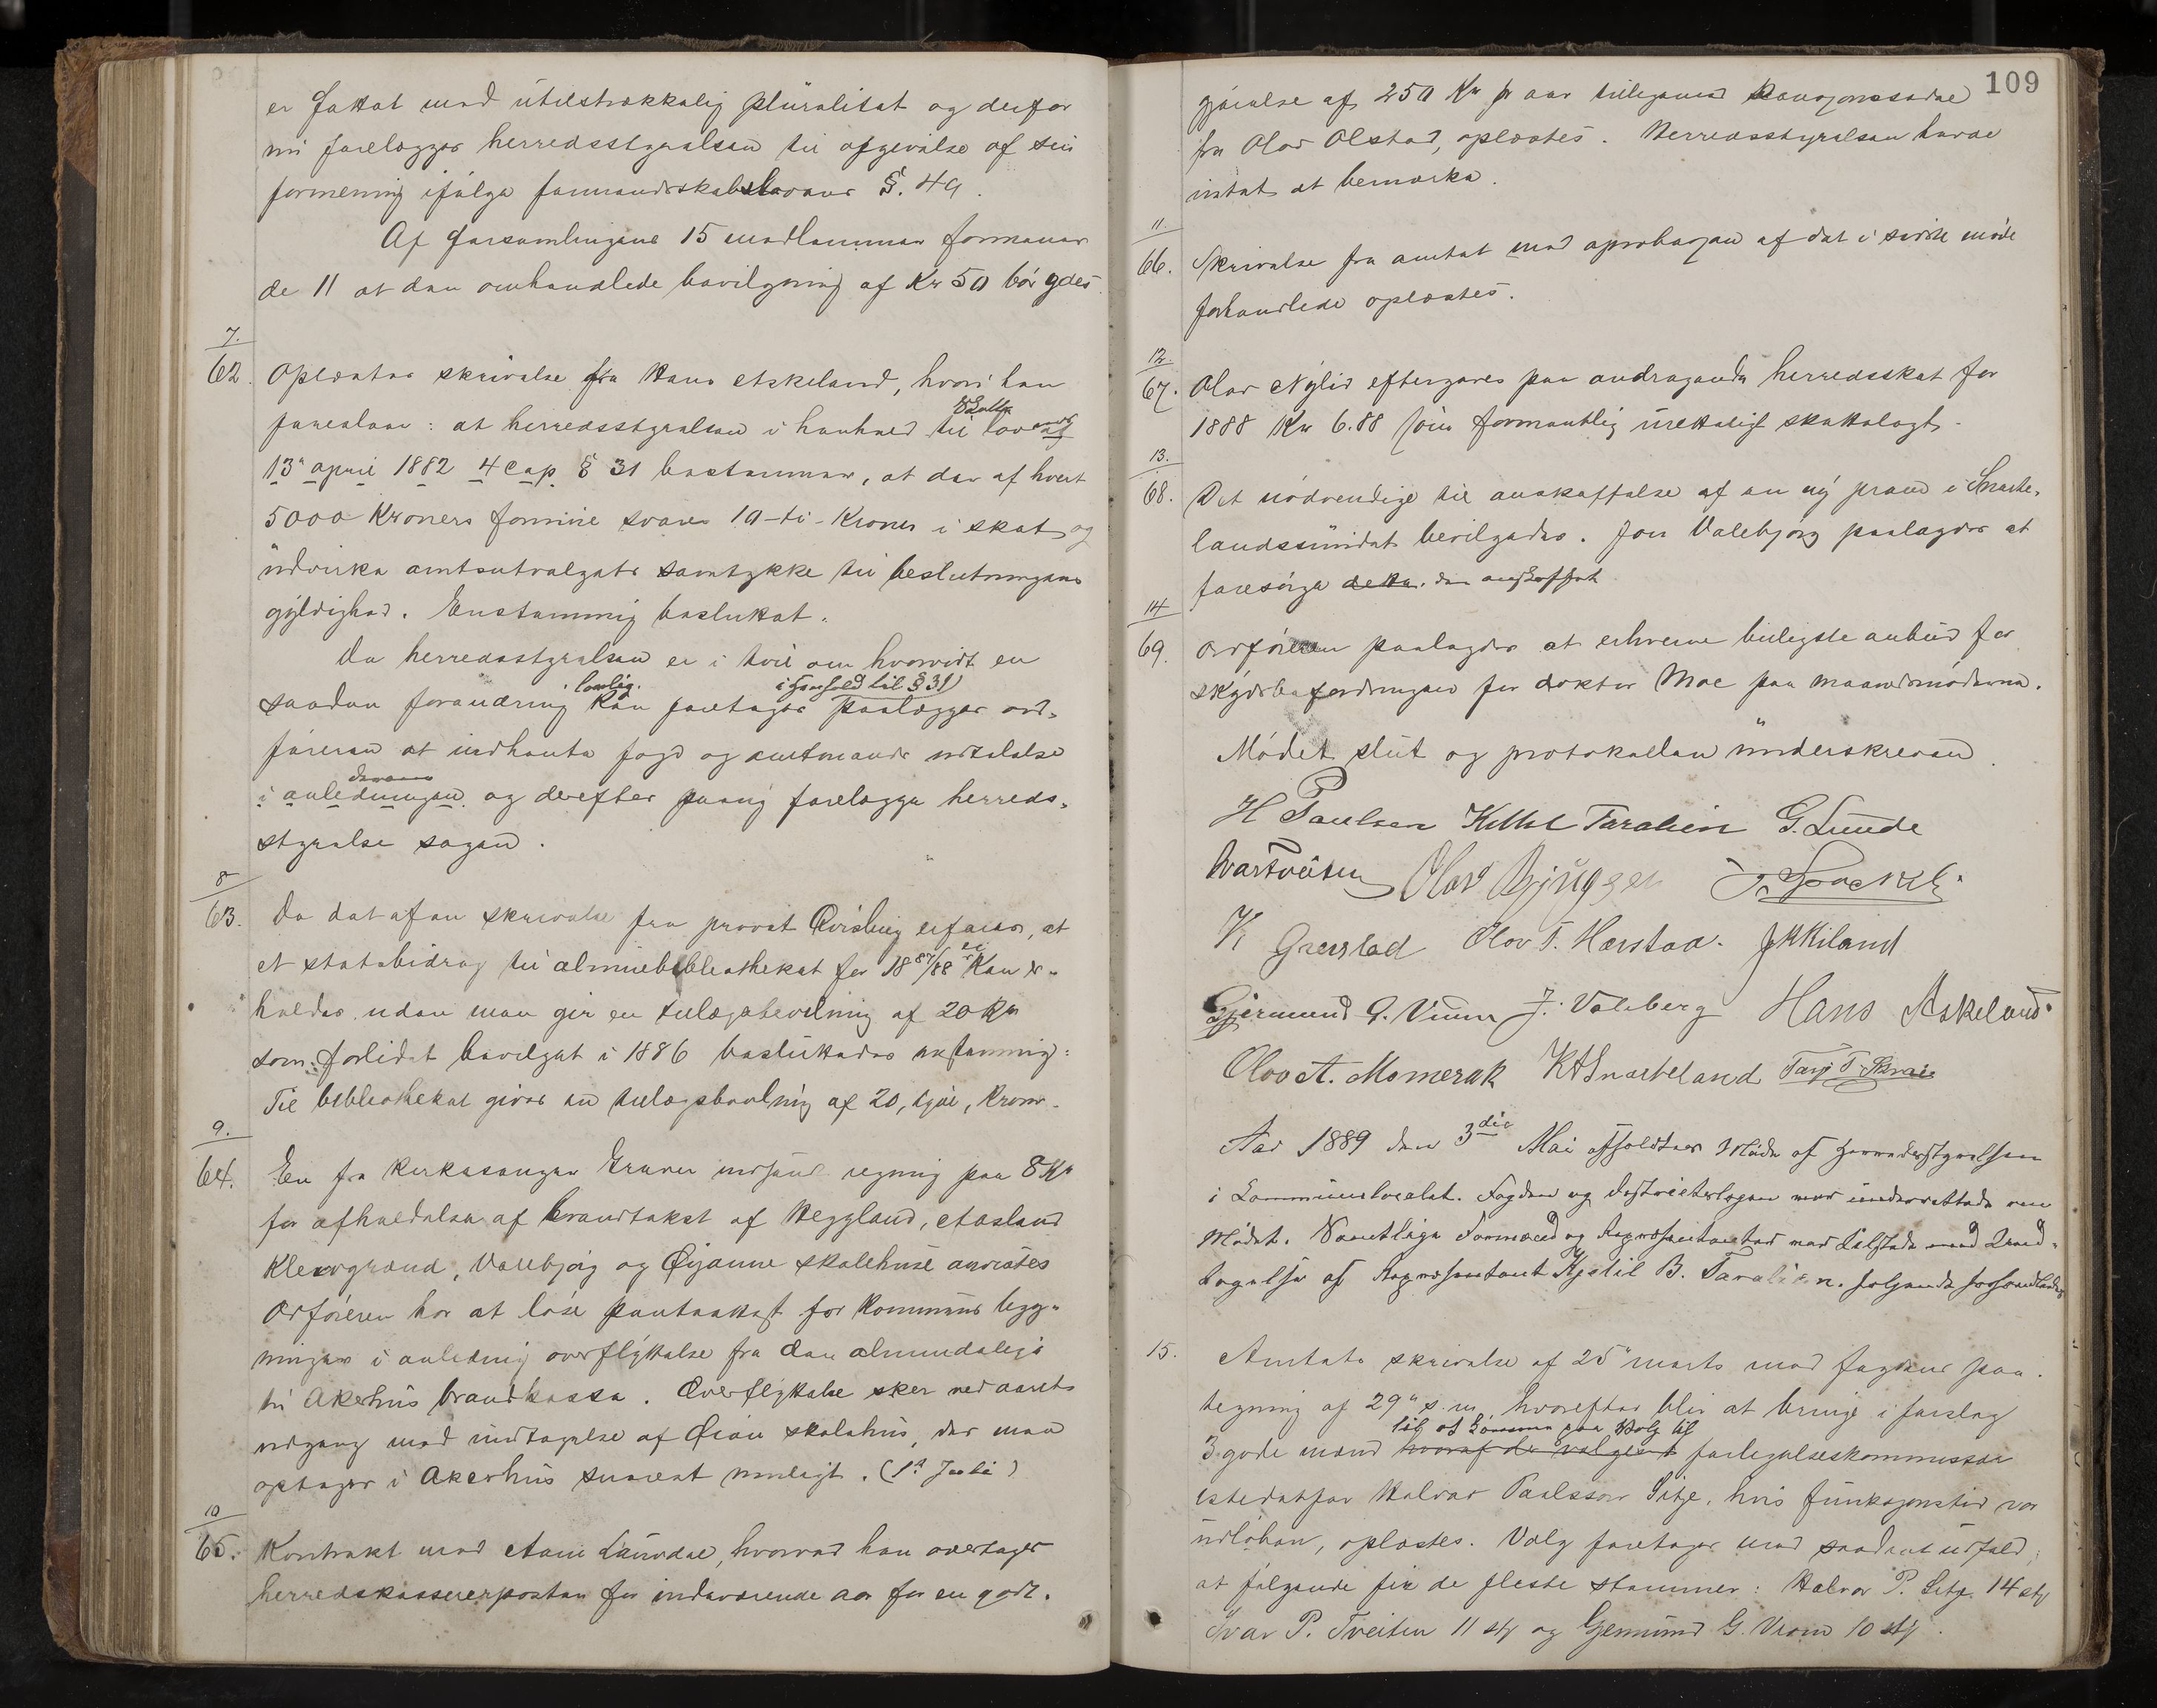 er fattat med utilstrækkelig pluralitet og derfor
nu forelægges herredsstyrelsen til afgivelse af sin
formening ifølge formandskabslovens §. 49.
Af forsamlingens 15 medlemmer formener
de 11 at den omhandlede bevilgning af Kr 50 bør ydes.
7.
62. Oplæstes skrivelse fra Hans Askeland, hvori han
skatte
foreslaar: at herredsstyrelsen i henhold til lov af
13" april 1882 4 Cap § 31 bestemmer, at der af hvert
5000 Kroners formue svares 10-ti-Kroner i skat og
udvirke amtsutvalgets samtykke til beslutningens
gyldighed. Enstemmig besluttet.
Da herredsstyrelsen er i tvil om hvorvidt en
lovlig. i Henhold til § 31)
saadan forandring kan foretages paalægges ord-
føreren at indhente fogd og amtmands udtalelse
i anledningen og derefter paany forelægge herreds-
styrelse sagen.
8
63. Da det af en skrivelse fra provst Qvisling erfares, at
et statsbidrag til almuebibliotheket for 1887/88 kan er-
holdes uden man gir en tillægsbevilning af 20 Kr
som forlidet bevilget i 1886 besluttedes enstemmig:
Til bibliotheket gives en tillægsbevilning af 20, tjue, Kroner.
9.
64. En fra Kirkesanger Graver indsendt regning paa 8 Kr
for afholdelse af brandtakst af Heggland, Aasland
Klevgrend, Valebjørg og Øyanne skolehuse anvistes
Ordføreren har at løse panteattest for kommunes byg-
ninger i anledning overflyttelse fra den almindelige
til Akershus brandkasse. Overflyttelse sker ved aarets
udgang med undtagelse af Øian skolehus, der man
optager i Akershus snarest muligt. (1st Juli)
10
65. Kontrakt med Aani Laurdal, hvorved han overtager
herredskassererposten for indeværende aar for en godt-
109
gjørelse af 250 Kr pr aar tilligemed kausjonssedel
fra Olav Olstad, oplæstes. Herredsstyrelsen havde
intet at bemærke.
11.
66. Skrivelse fra amtet med aprobasjon af det i sidste møde
forhandlede oplæstes.
12.
67. Olav Nylid eftergaves paa andragende herredsskat for
1888 Kr 6.88 som formentlig urettelig skattelagt.
13.
68. Det nødvendige til anskaffelse af en ny pram i Snarte-
landssundet bevilgedes. Jon Valebjørg paalagdes at
foresørge dette. den anskaffet
14
69. Ordføreren paalagdes at erhverve billigste anbud for
skydsbefordringen for doktor Moe paa maanedsmøderne.
Mødet slut og protokollen underskreven.
H Paulsen Kittil Taralien G. Lunde
Ivar Tveiten Olav Bjaagen
K. Gaerstad Olov T. Harstad. J K Kiland
Gjermund G. Vraum J. Valeberg Hans Askeland
Olov A. Momrak K A Snarteland Tarje T. Skrae
Aar 1889 den 3die Mai afholdtes Møde af Herredsstyrelsen
i Kommunelocalet. Fogden og districtslægen var underrettede om
Mødet. Samtlige Formænd og Repræsentanter var tilstede med Und-
tagelse af Repræsentant Kjetil B. Taralien. følgende forhandledes
15. Amtets skrivelse af 25" marts med fogdens paa-
tegning af 29" s. m. hvorefter blir at bringe i forslag
til at komme paa Valg til
3 gode mænd hvoraf de valgent forligelseskommissær
istedetfor Halvor Paulsson Sitje, hvis funksjonstid var
udløben, oplæstes. Valg foretages med saadant udfald,
at følgende fik de fleste stemmer: Halvor P. Sitje 14 st
Ivar P. Tveiten 11 st og Gjermund G. Vraum 10 st.